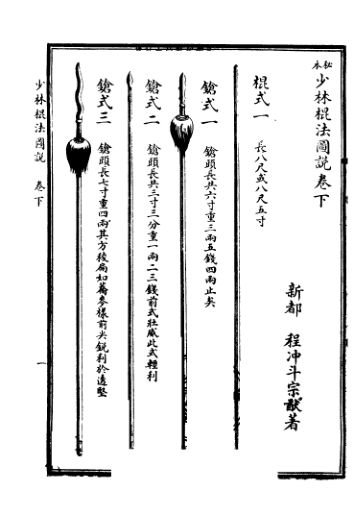 秘本
少林棍法圖說卷下
新都 程冲斗宗猷著
棍式一 長八尺或八尺五寸
鎗式一 鎗頭長共六寸重三兩五錢四兩止矣
鎗式二 鎗頭長共三寸三分重一兩二三錢前式壯威此式輕利
鎗式三 鎗頭長七寸重四兩其方後扁如蕎麥樣前尖銳利於透堅
少林棍法圖說 卷下
一